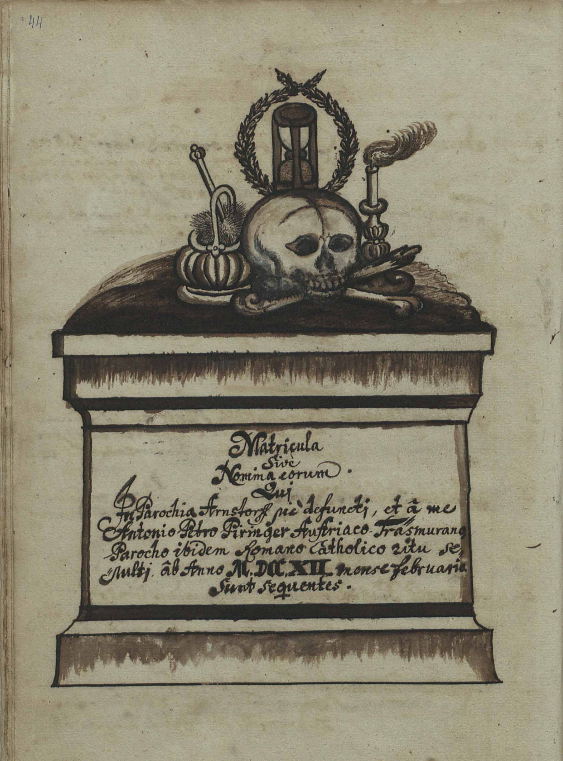 44
Matricula
Sive
Nomina eorum.
Qui
In Parochia Arnstorff piè defuncti, et â me
Antonio Petro Piringer Austriaco Trasmurano
Parocho ibidem Romano Catholico ritu se,
pulti. âb Anno M.DCCXII mense februario
Sunt sequentes.